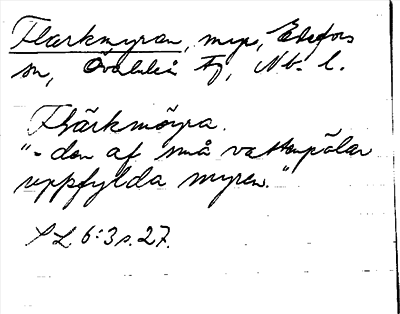 Flarkmyran, myr, Edefors
sn, Överluleå tg, Nb. l.
Flärkmöyra.
"- den af små vattenpölar
uppfylda myren."
S L 6:3 s. 27.